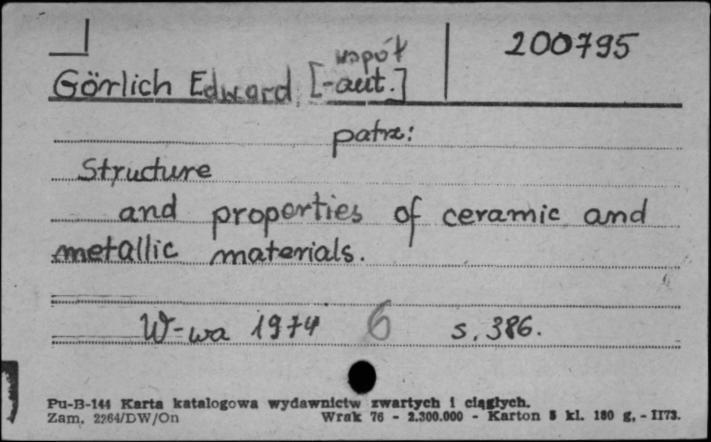 200795
współ
Görlich Edward [-aut.]
patrz:
Structure
and properties of ceramic and
metallic materials.
W-wa 1974 6 s. 386.
Pu-B-144 Karta katalogowa wydawnictw zwartych i ciągłych.
Zam. 2264/DW/On Wrak 76 - 2.300.000 - Karton 8 kl. 180 g. - II73.